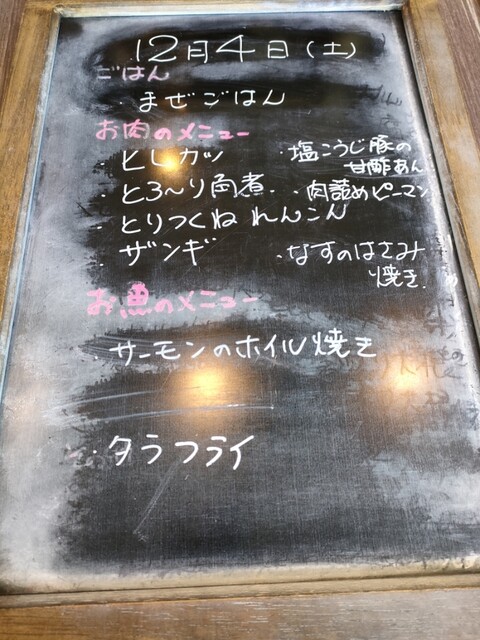 12月4日(土)
ごはん
・まぜごはん
お肉のメニュー
・ヒレカツ
・とろ～り角煮
・とりつくねれんこん
・ザンギ
・塩こうじ豚の
甘酢あん
・肉詰めピーマン
・なすのはさみ
焼き
お魚のメニュー
・サーモンのホイル焼き
・タラフライ